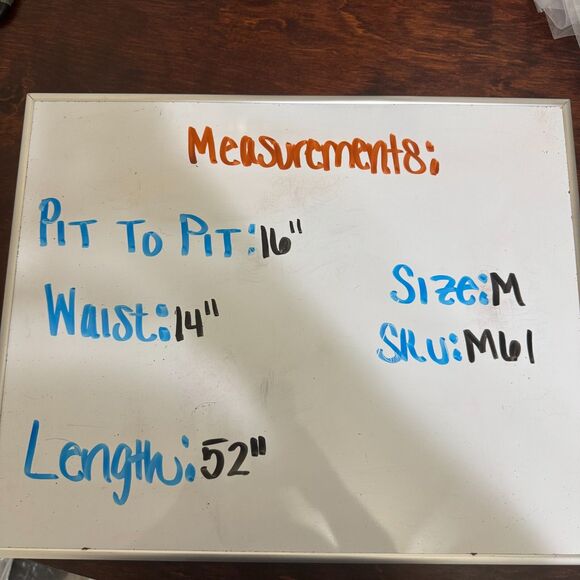 Measurements:
Pit To Pit: 16"
Waist: 14"
Size: M
SKU: M61
Length: 52"